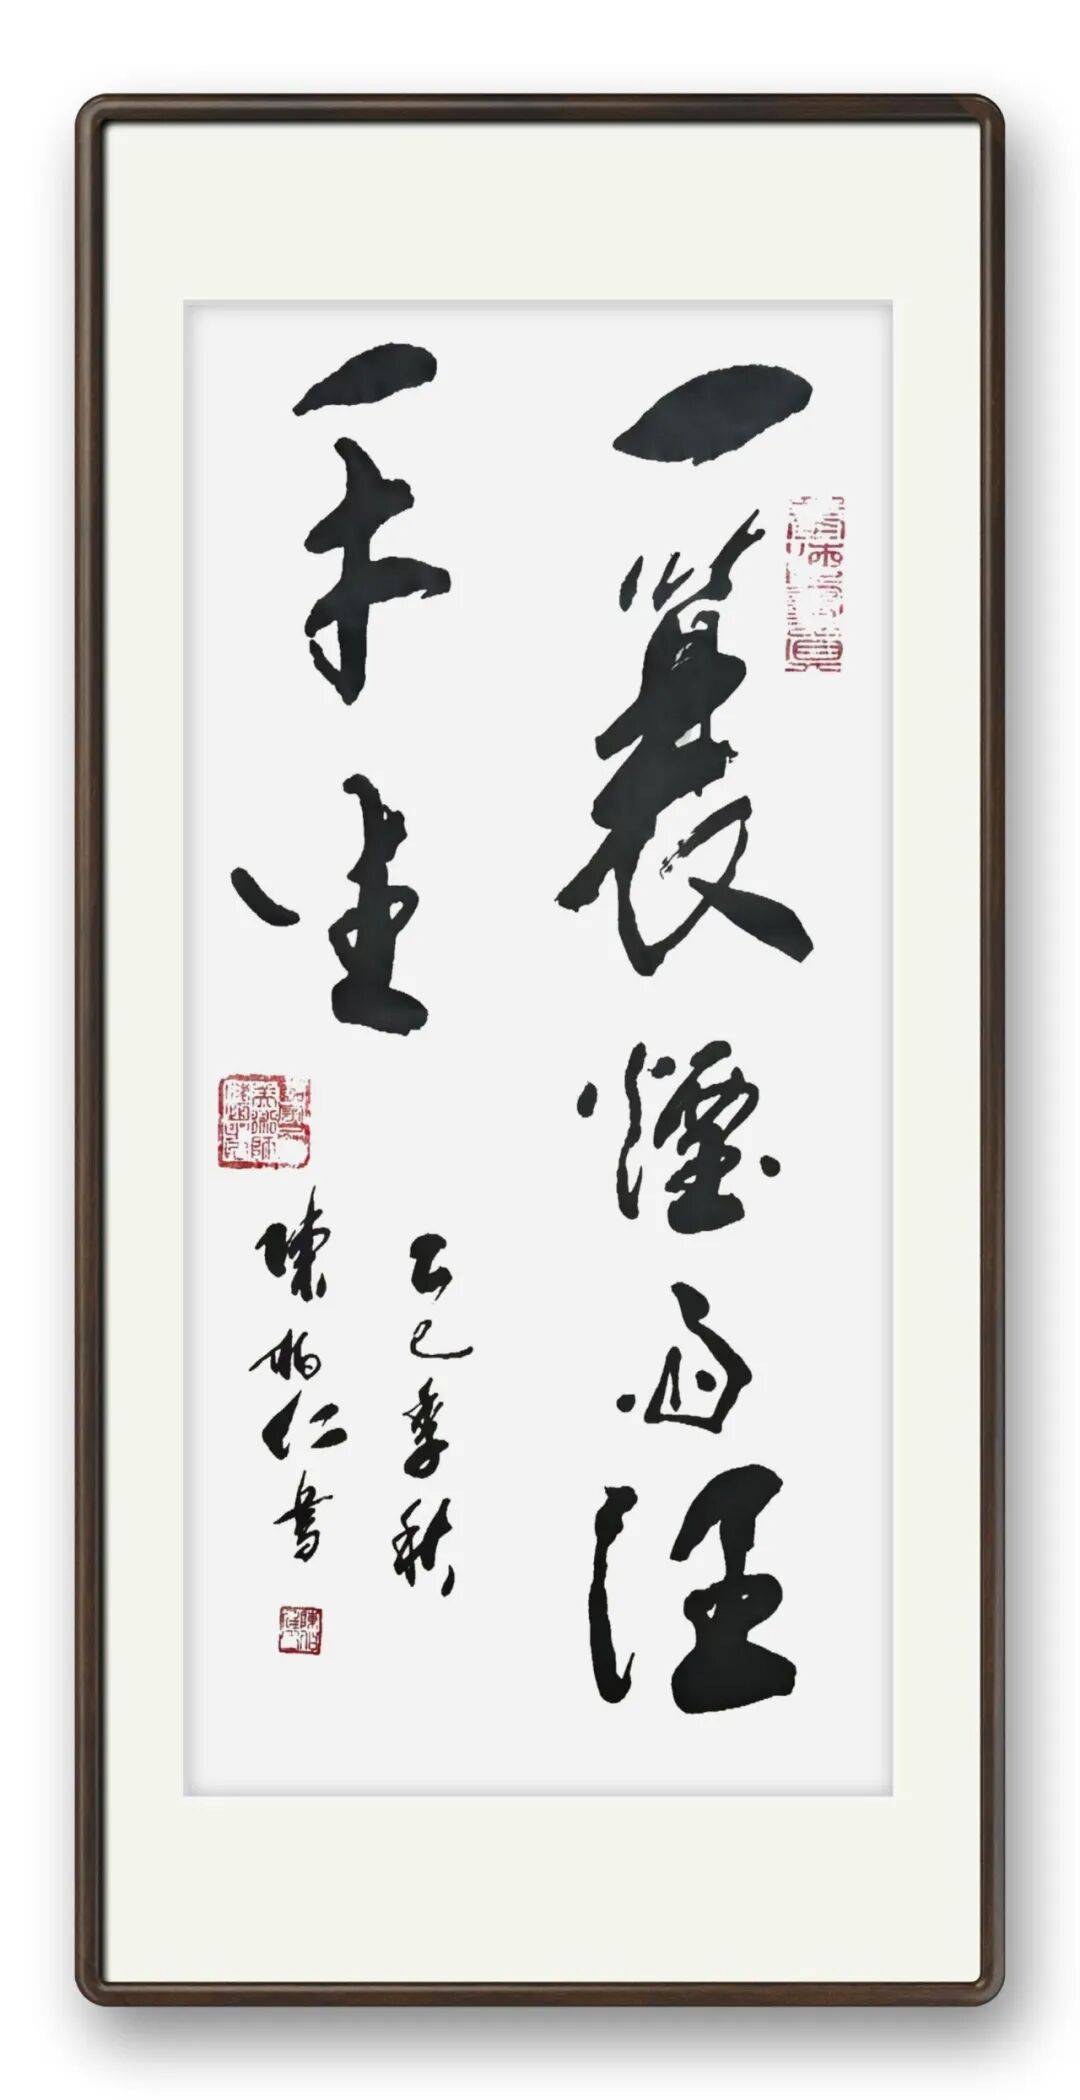 一蓑煙雨任
平生
乙巳季秋
陳柏仁書